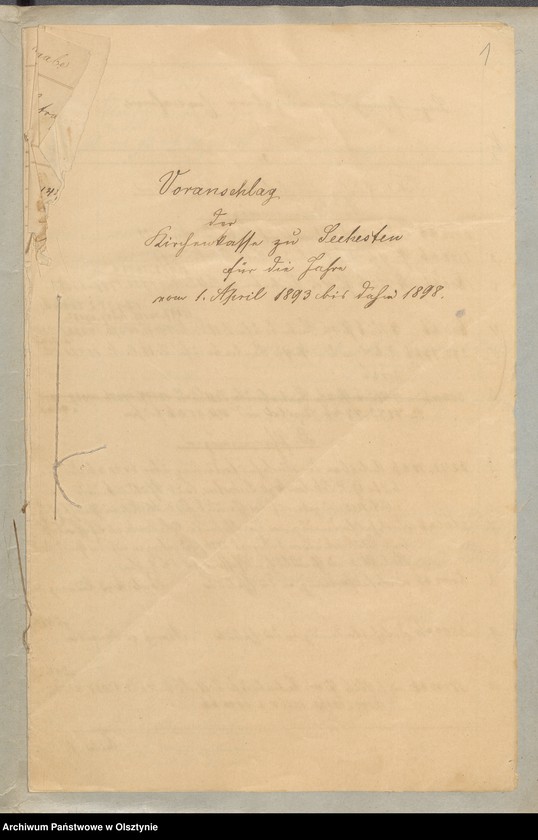 1
Voranschlag
der
Kirchenkasse zu Seehesten
für die Jahre
vom 1. April 1893 bis dahin 1898.
Archiwum Państwowe w Olsztynie